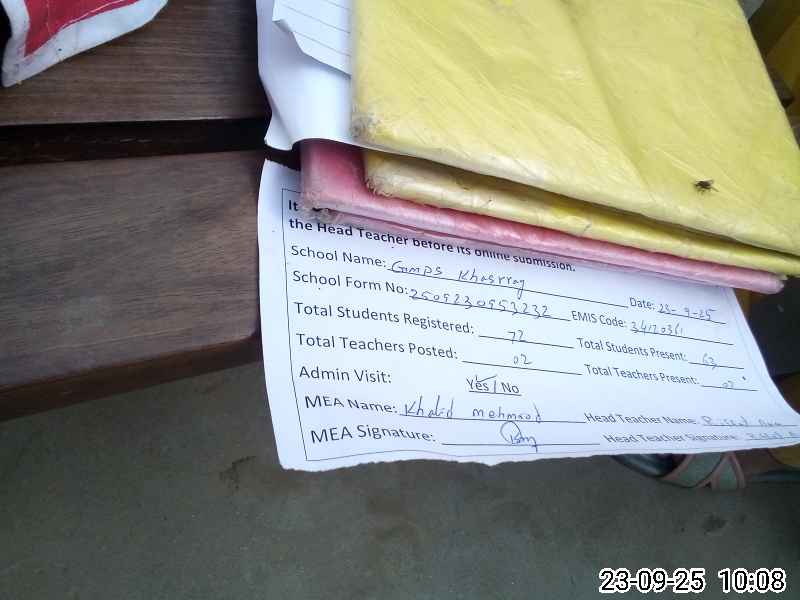 It
the Head Teacher before its online submission.
School Name: GMPS Khasrray Date: 23-9-25
School Form No: 2509230953232 EMIS Code: 34120361
Total Students Registered: 72 Total Students Present: 63
Total Teachers Posted: 02 Total Teachers Present: 02
Admin Visit: Yes / No
MEA Name: Khalid mehmood Head Teacher Name:
MEA Signature: Head Teacher Signature:
23-09-25 10:08